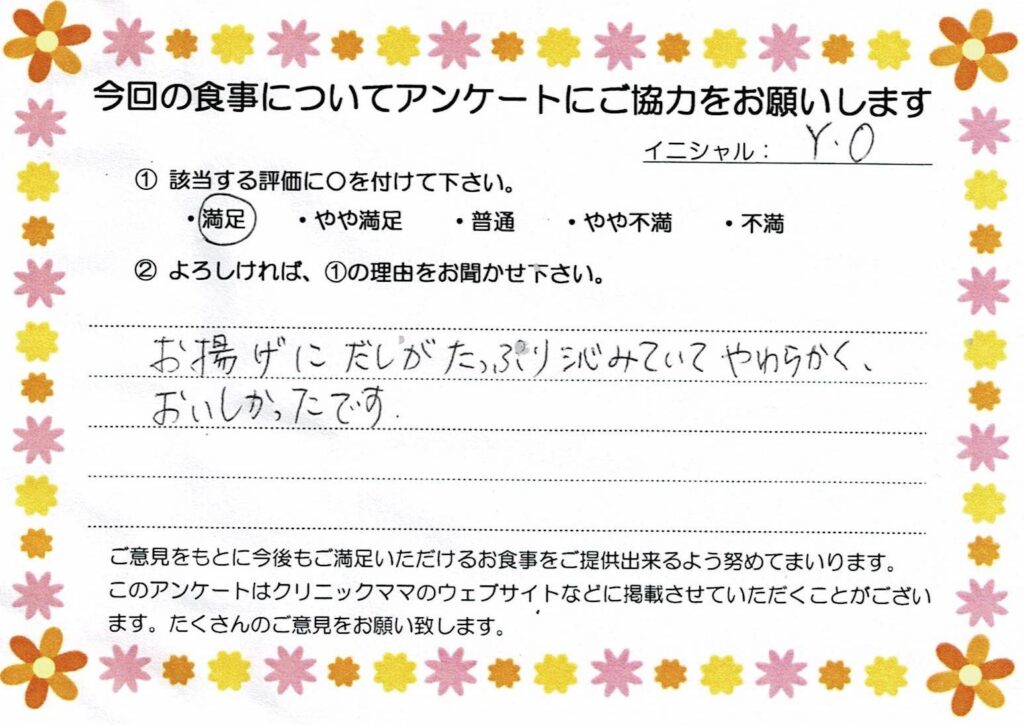 今回の食事についてアンケートにご協力をお願いします
イニシャル： Y.O
① 該当する評価に〇を付けて下さい。
・満足 ・やや満足 ・普通 ・やや不満 ・不満
② よろしければ、①の理由をお聞かせ下さい。
お揚げにだしがたっぷり沁みていてやわらかく、
おいしかったです.
ご意見をもとに今後もご満足いただけるお食事をご提供出来るよう努めてまいります。
このアンケートはクリニックママのウェブサイトなどに掲載させていただくことがござい
ます。たくさんのご意見をお願い致します。